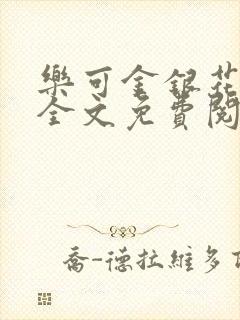 樂可金銀花
全文免費閱
喬-德拉維多